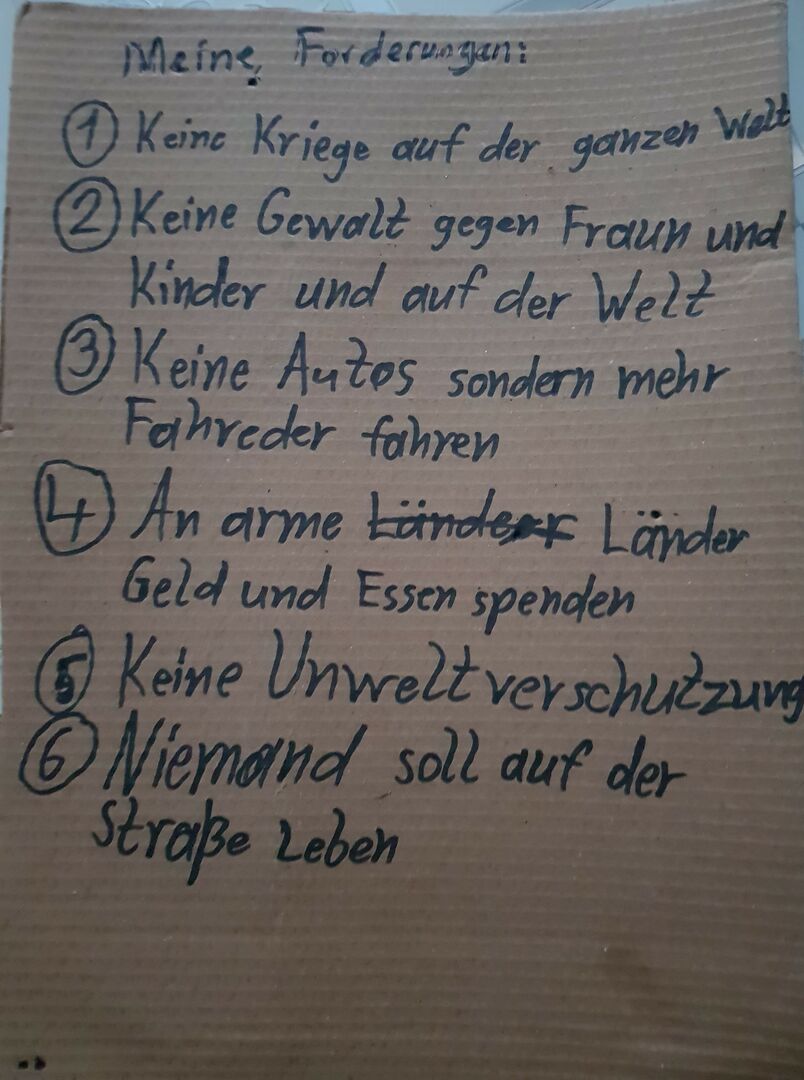 Meine, Forderungen:
1 Keine Kriege auf der ganzen Welt
2 Keine Gewalt gegen Fraun und
Kinder und auf der Welt
3 Keine Autos sondern mehr
Fahreder fahren
4 An arme Länder Länder
Geld und Essen spenden
5 Keine Unweltverschutzung
6 Niemand soll auf der
Straße Leben